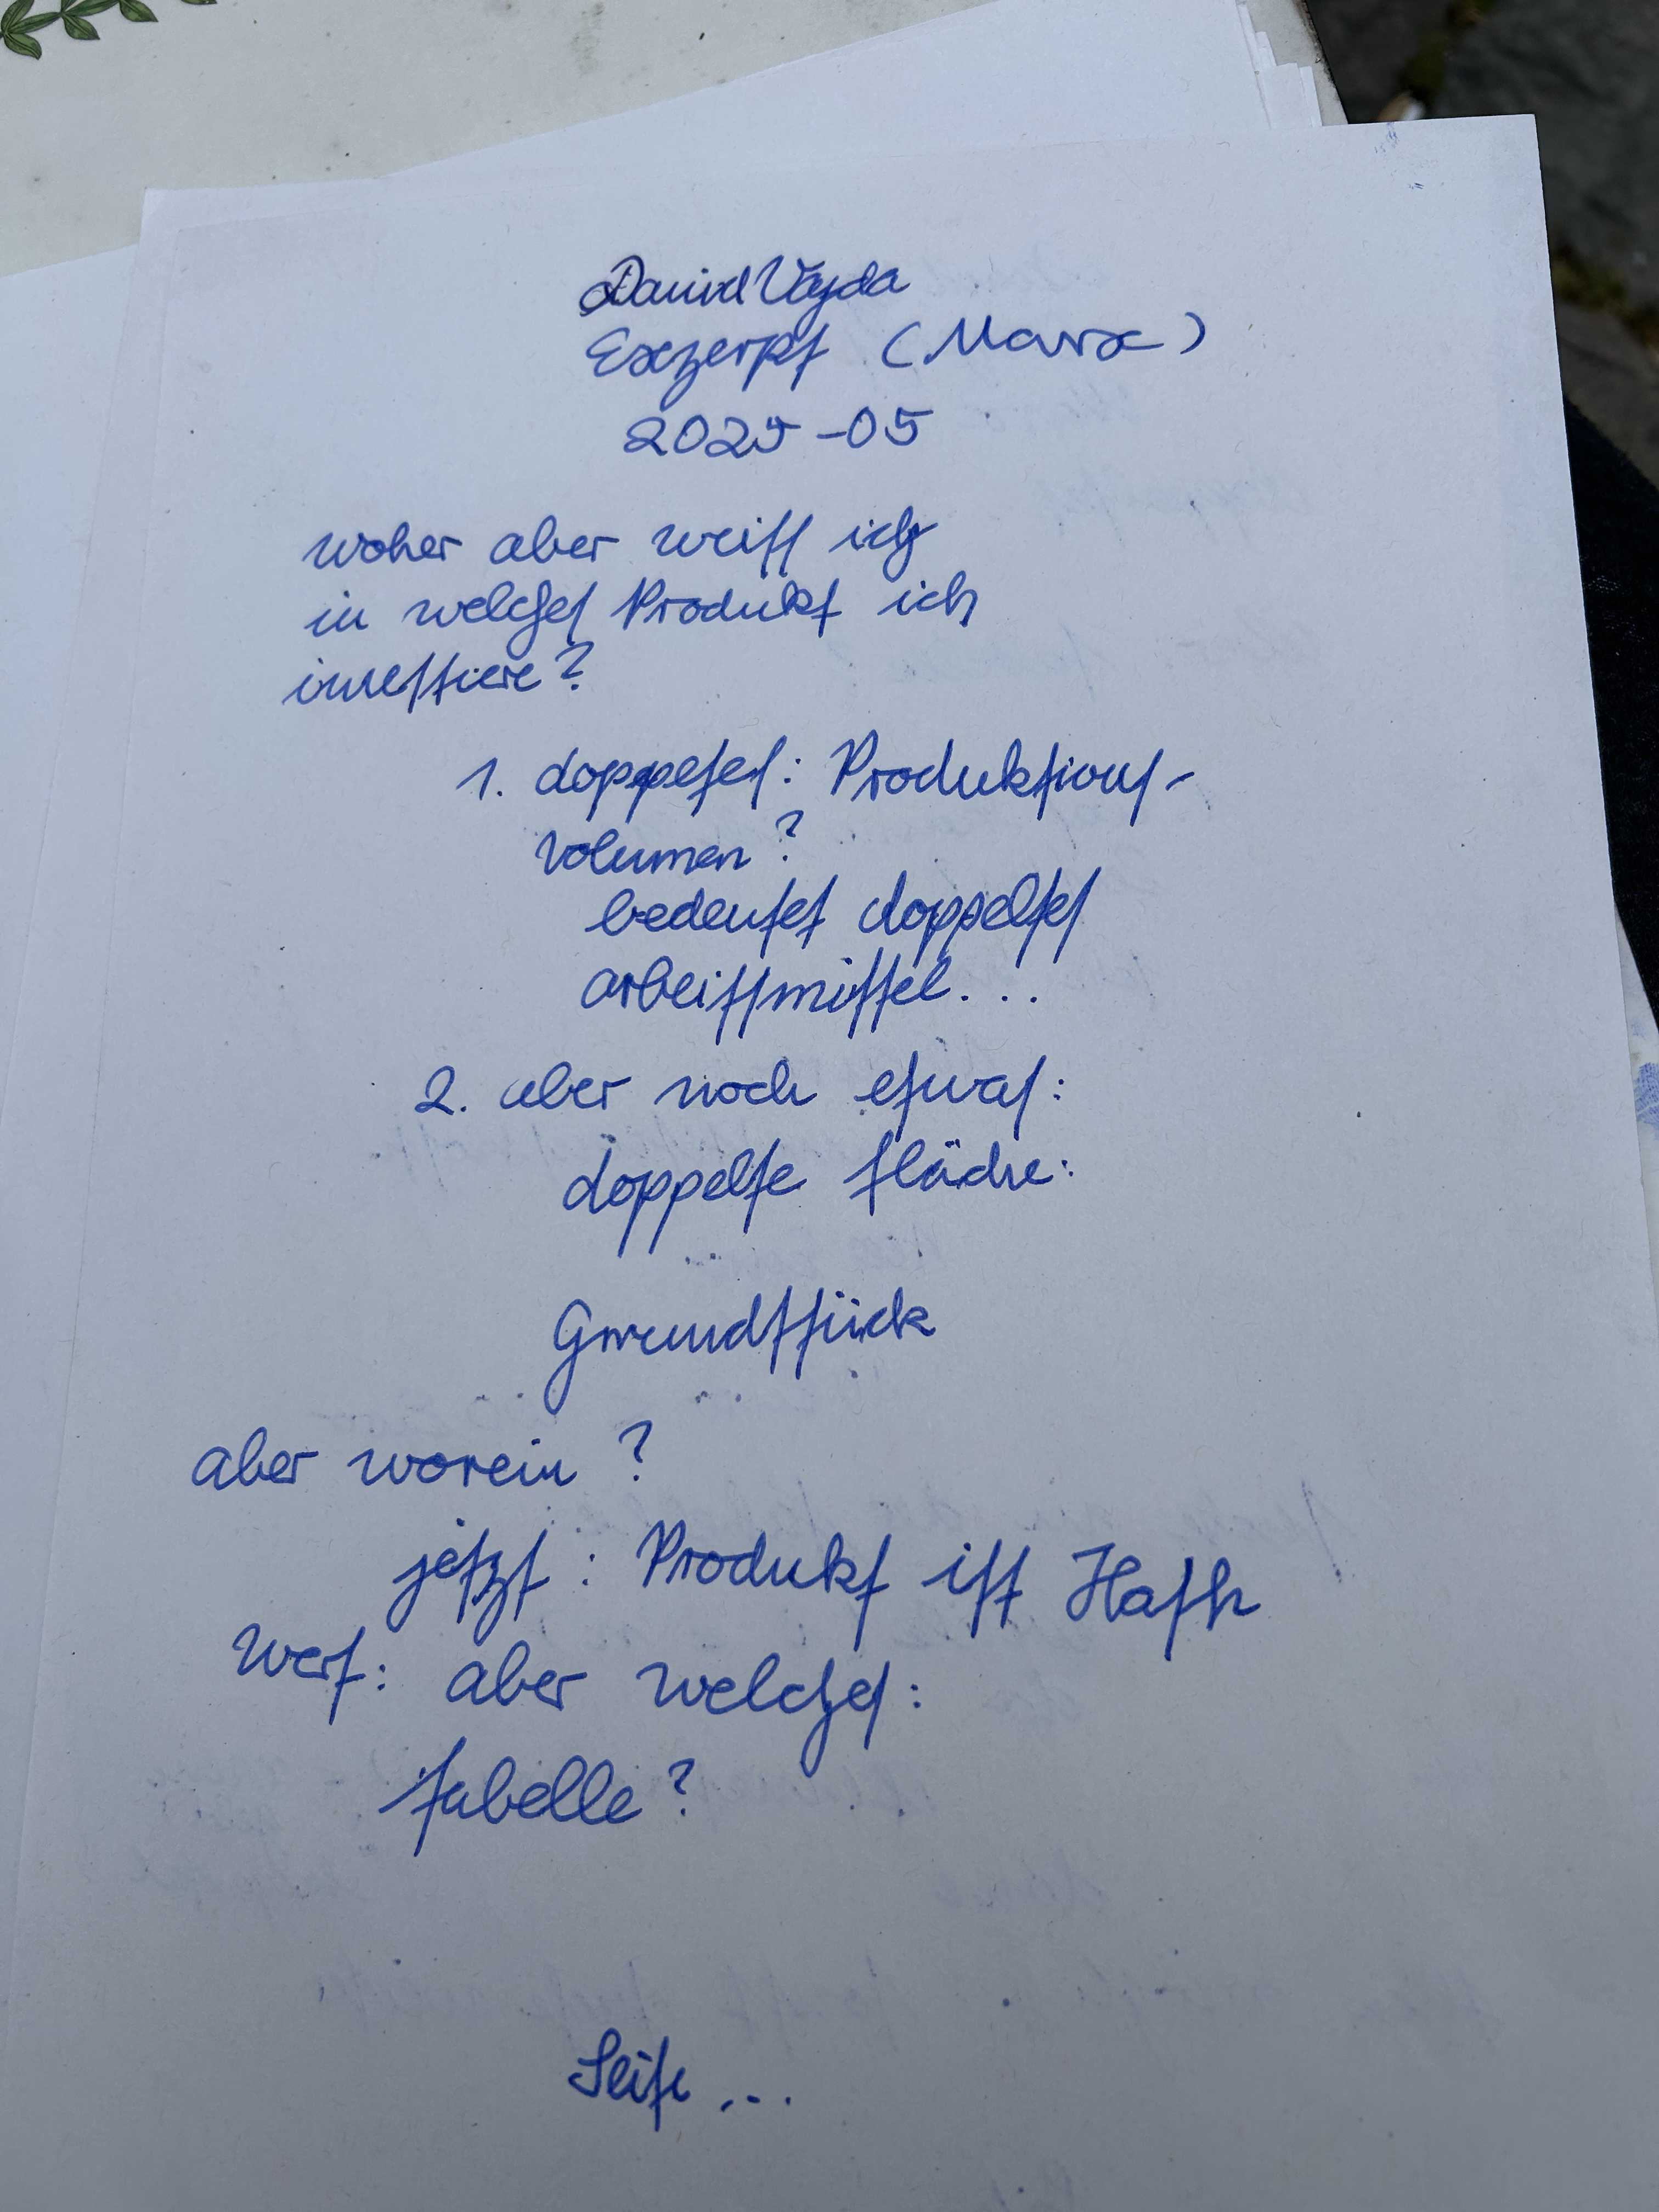 David Vajda
Exzerpt (Marx)
2025-05
woher aber weiss ich
in welches Produkt ich
investiere?
1. doppeltes: Produktions-
volumen?
bedeutet doppeltes
arbeitsmittel...
2. aber noch etwas:
doppelte fläche:
Grundstück
aber worein?
jetzt: Produkt ist
Wert: aber welches:
tabelle?
Seite ...